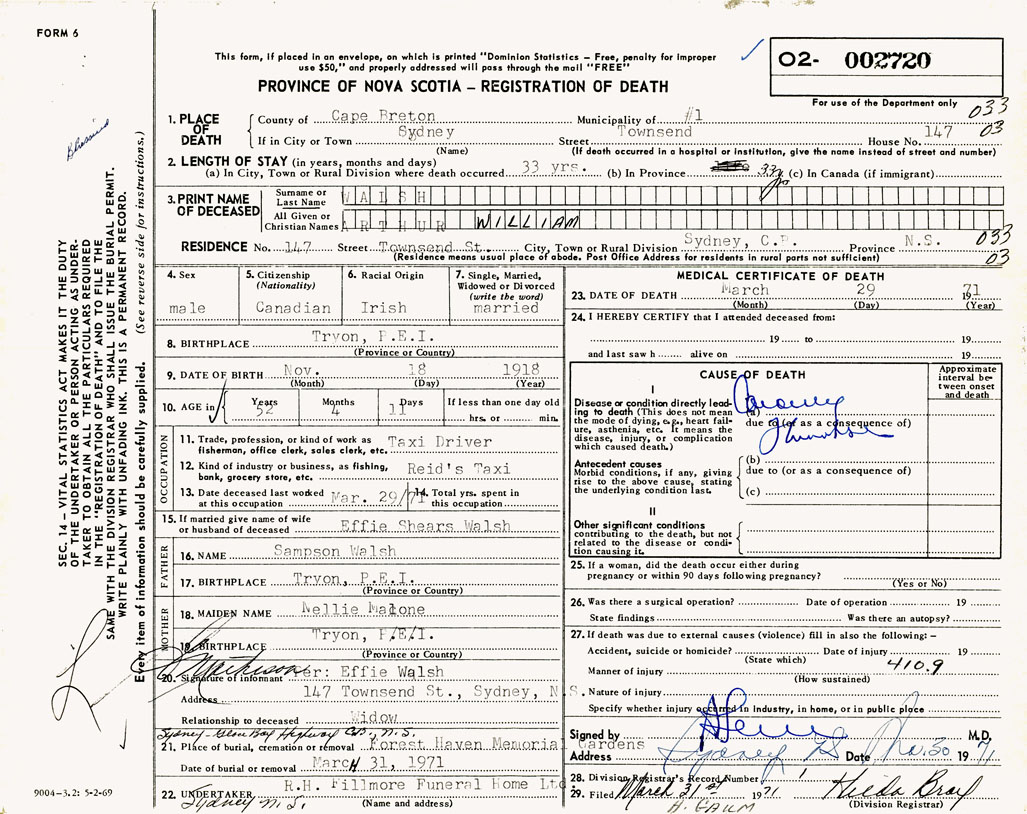 FORM 6
This form, if placed in an envelope, on which is printed "Dominion Statistics – Free, penalty for improper
use $50," and properly addressed will pass through the mail "FREE"
O2- 002720
For use of the Department only
PROVINCE OF NOVA SCOTIA – REGISTRATION OF DEATH
033
03
1. PLACE OF DEATH
County of Cape Breton Municipality of #1
If in City or Town Sydney Street Townsend House No. 147
(Name) (If death occurred in a hospital or institution, give the name instead of street and number)
2. LENGTH OF STAY (in years, months and days)
(a) In City, Town or Rural Division where death occurred 33 yrs. (b) In Province 33 yrs (c) In Canada (if immigrant)
3. PRINT NAME OF DECEASED
Surname or Last Name WALSH
All Given or Christian Names ARTHUR WILLIAM
RESIDENCE No. 147 Street Townsend St. City, Town or Rural Division Sydney, C.B. Province N.S.
(Residence means usual place of abode. Post Office Address for residents in rural parts not sufficient)
033
03
4. Sex
male
5. Citizenship
(Nationality)
Canadian
6. Racial Origin
Irish
7. Single, Married,
Widowed or Divorced
(write the word)
married
8. BIRTHPLACE Tryon, P.E.I.
(Province or Country)
9. DATE OF BIRTH Nov. 18 1918
(Month) (Day) (Year)
10. AGE in Years Months Days If less than one day old
52 4 11 hrs. or min.
OCCUPATION
11. Trade, profession, or kind of work as
fisherman, office clerk, sales clerk, etc. Taxi Driver
12. Kind of industry or business, as fishing,
bank, grocery store, etc. Reid's Taxi
13. Date deceased last worked
at this occupation Mar. 29/71
14. Total yrs. spent in
this occupation
15. If married give name of wife
or husband of deceased Effie Shears Walsh
FATHER
16. NAME Sampson Walsh
17. BIRTHPLACE Tryon, P.E.I.
(Province or Country)
MOTHER
18. MAIDEN NAME Nellie Malone
19. BIRTHPLACE Tryon, P/E/I.
(Province or Country)
20. Signature of informant er: Effie Walsh
Address 147 Townsend St., Sydney, N.S.
Relationship to deceased Widow
Sydney-Glace Bay Highway C.B., N.S.
21. Place of burial, cremation or removal Forest Haven Memorial Gardens
Date of burial or removal March 31, 1971
22. UNDERTAKER R.H. Fillmore Funeral Home Ltd.
Sydney N.S. (Name and address)
MEDICAL CERTIFICATE OF DEATH
23. DATE OF DEATH March 29 1971
(Month) (Day) (Year)
24. I HEREBY CERTIFY that I attended deceased from:
19 to 19
and last saw h alive on 19
CAUSE OF DEATH
Approximate
interval be-
tween onset
and death
I
Disease or condition directly lead-
ing to death (This does not mean
the mode of dying, e.g., heart fail-
ure, asthenia, etc. It means the
disease, injury, or complication
which caused death.)
(a) Coronary
due to (or as a consequence of)
Antecedent causes
Morbid conditions, if any, giving
rise to the above cause, stating
the underlying condition last.
(b)
due to (or as a consequence of)
(c)
II
Other significant conditions
contributing to the death, but not
related to the disease or condi-
tion causing it.
25. If a woman, did the death occur either during
pregnancy or within 90 days following pregnancy?
(Yes or No)
26. Was there a surgical operation? Date of operation 19
State findings Was there an autopsy?
27. If death was due to external causes (violence) fill in also the following: –
Accident, suicide or homicide? Date of injury 19
(State which)
410.9
Manner of injury
(How sustained)
Nature of injury
Specify whether injury occurred in industry, in home, or in public place
Signed by M.D.
Address Sydney Date 30 1971
28. Division Registrar's Record Number
29. Filed March 31st 1971 Hilda Bray
(Division Registrar)
SEC. 14 – VITAL STATISTICS ACT MAKES IT THE DUTY
OF THE UNDERTAKER OR PERSON ACTING AS UNDER-
TAKER TO OBTAIN ALL THE PARTICULARS REQUIRED
IN THE "REGISTRATION OF DEATH" AND TO FILE THE
SAME WITH THE DIVISION REGISTRAR WHO SHALL ISSUE THE BURIAL PERMIT.
WRITE PLAINLY WITH UNFADING INK. THIS IS A PERMANENT RECORD.
Every item of information should be carefully supplied. (See reverse side for instructions.)
9004-3.2: 5-2-69